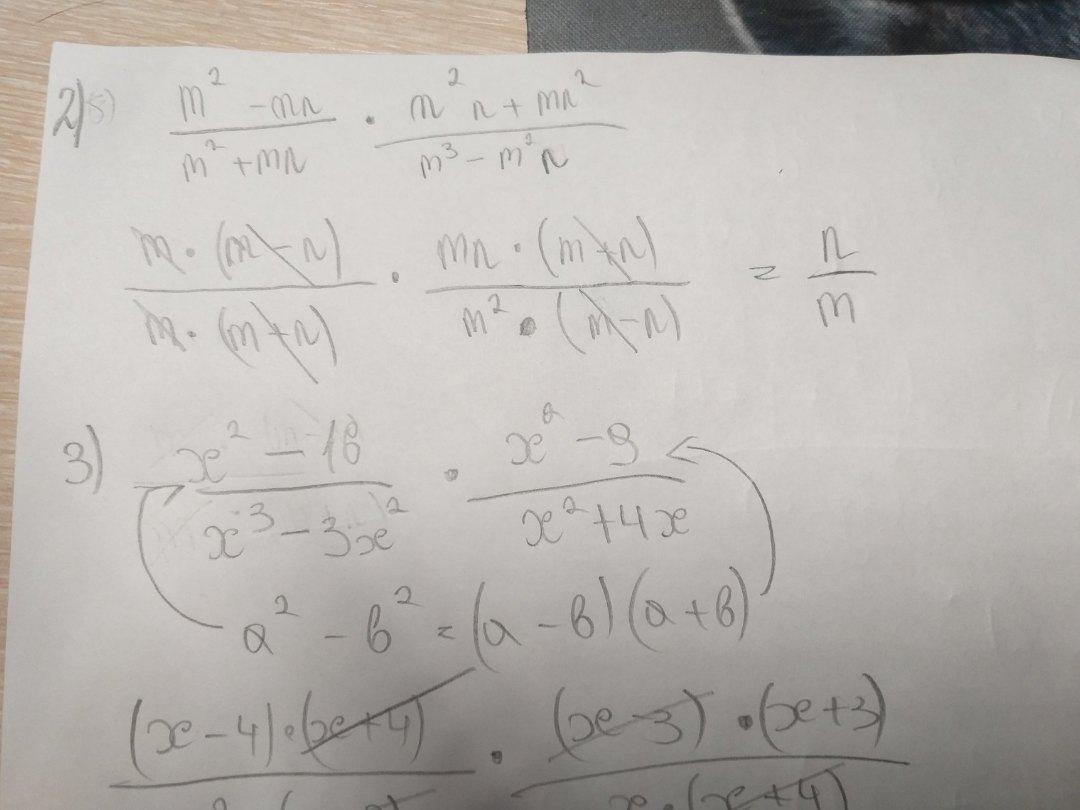 2) 5) (m² - mn)/(m² + mn) · (m²n + mn²)/(m³ - m²n)
(m · (m - n))/(m · (m + n)) · (mn · (m + n))/(m² · (m - n)) = n/m
3) (x² - 16)/(x³ - 3x²) · (x² - 9)/(x² + 4x)
a² - b² = (a - b)(a + b)
(x - 4) · (x + 4) · (x - 3) · (x + 3)
x · (x + 4)